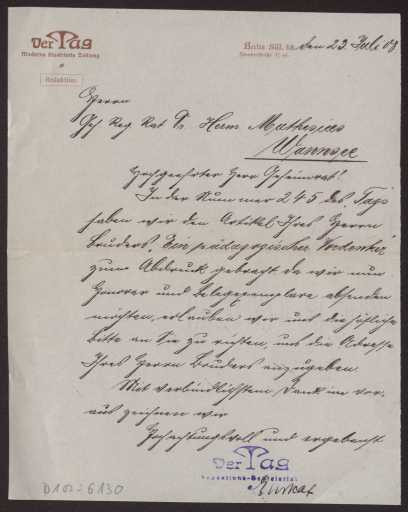 Der Tag
Moderne illustrierte Zeitung
Redaktion.
Berlin SW, 68, den 23. Juli 08
Herrn
Geh Reg Rat Dr Herm Mathesius
Wannsee
Hochgeehrter Herr Geheimrat!
In der Nummer 245 des "Tags"
haben wir den Artikel Ihres Herrn
Bruders "Ein pädagogischer Vordenker"
zum Abdruck gebracht da wir nun
Honorar und Belegexemplare absenden
möchten, erlauben wir uns die höfliche
Bitte an Sie zu richten, uns die Adresse
Ihres Herrn Bruders anzugeben.
Mit verbindlichstem Dank im vor-
aus zeichnen wir
Hochachtungsvoll und ergebenst
Der Tag
D 102-6130